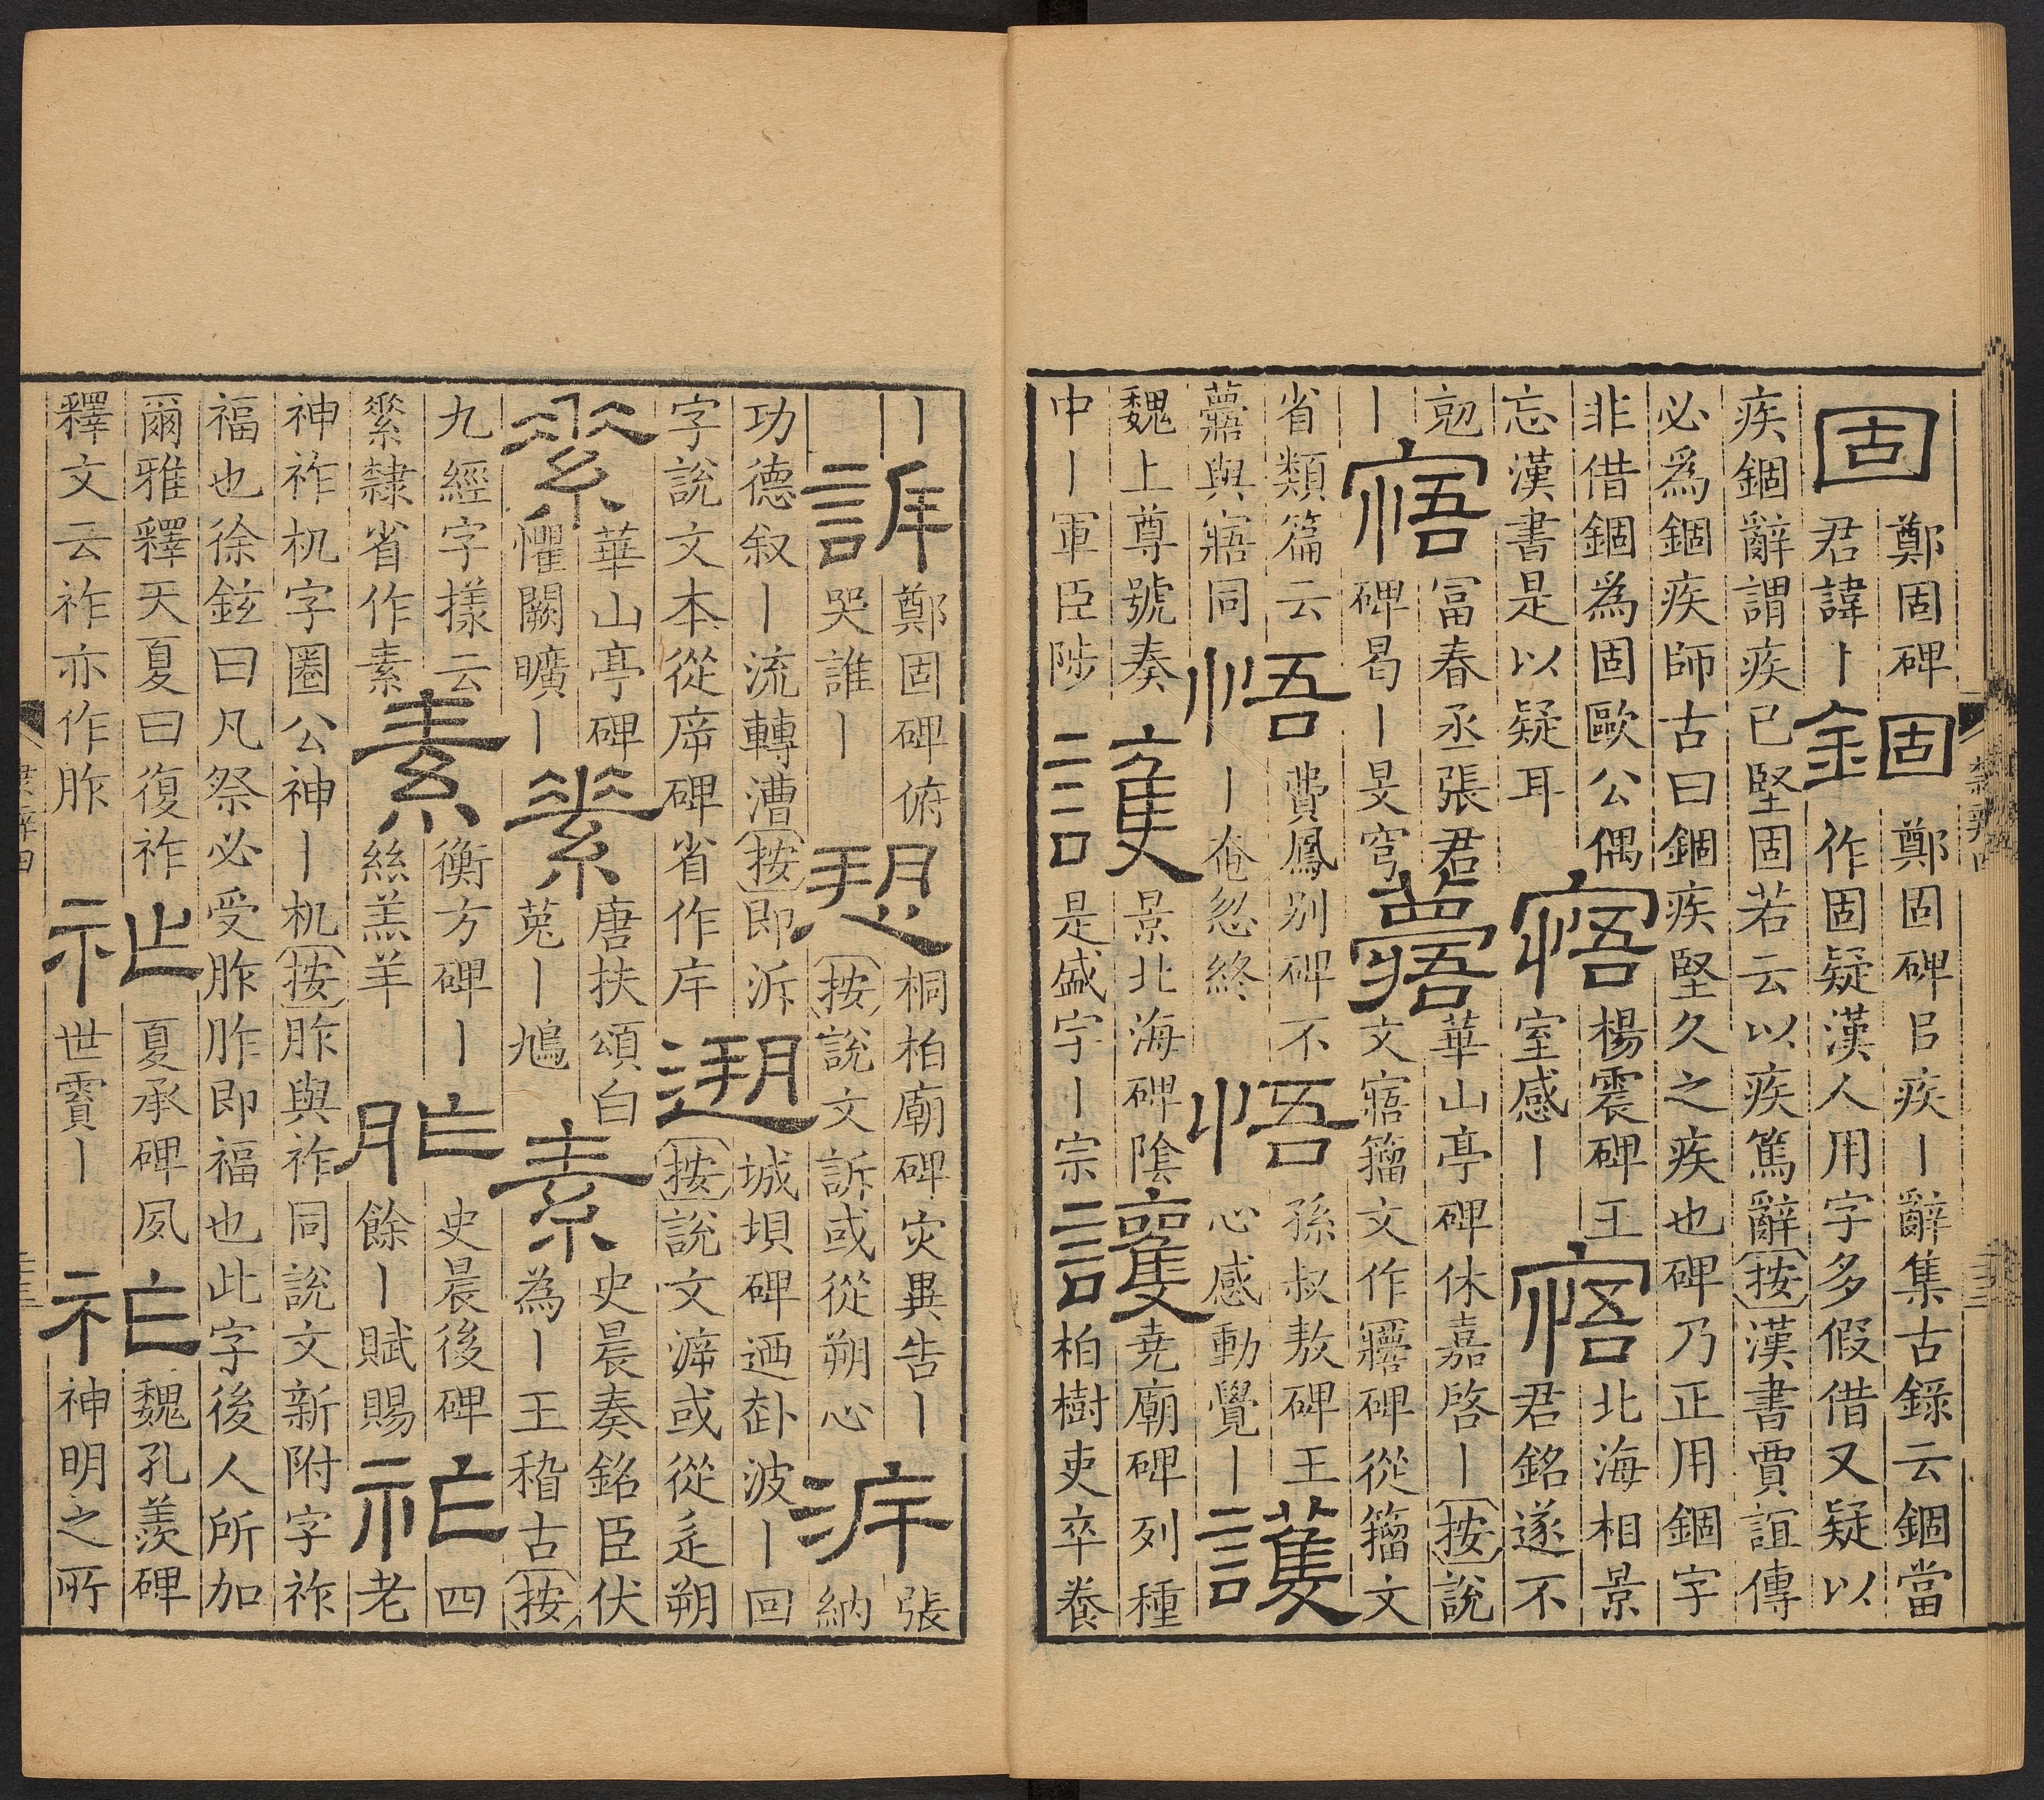 固
鄭固碑
君諱丨
錮
鄭固碑㠯疾丨辭集古錄云錮當
作固疑漢人用字多假借又疑以
疾錮辭謂疾已堅固若云以疾篤辭按漢書賈誼傳
必爲錮疾師古曰錮疾堅久之疾也碑乃正用錮字
非借錮爲固歐公偶
忘漢書是以疑耳
寤
楊震碑王
室感丨
寤
北海相景
君銘遂不
尅
丨
寤
冨春丞張君
碑曷丨旻穹
華山亭碑休嘉啓丨按說
文寤籀文作碑從籀文
省類篇云
與寤同
悟
費鳳别碑不
丨奄忽終
悟
孫叔敖碑王
心感動覺丨
護
魏上尊號奏
中丨軍臣陟
護
景北海碑陰
是盛字丨宗
護
堯廟碑列種
柏樹吏卒養
丨
訴
鄭固碑俯
哭誰丨
愬
桐柏廟碑灾異告丨
按說文訴或從朔心
泝
張
納
功德叙丨流轉漕按即泝
字說文本從㡿碑省作斥
遡
城垻碑迺波丨回
按說文㴑或從辵朔
華山亭碑
懼闕曠丨
素
唐扶頌白
菟丨鳩
素
史晨奏銘臣伏
為丨王稽古按
九經字樣云
隸省作素
素
衡方碑丨
絲羔羊
胙
史晨後碑
餘丨賦賜
祚
四
老
神祚机字圈公神丨机按胙與祚同說文新附字祚
福也徐鉉曰凡祭必受胙胙即福也此字後人所加
爾雅釋天夏曰復祚
釋文云祚亦作胙
祚
夏承碑夙
世賓丨
祚
魏孔羨碑
神明之所